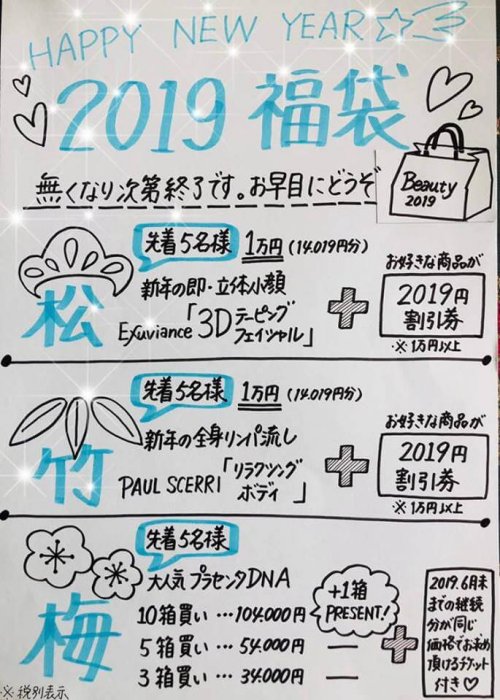 HAPPY NEW YEAR
2019 福袋
無くなり次第終了です。お早目にどうぞ
Beauty
2019
松
先着5名様 1万円 (14.019円分)
新年の即・立体小顔
Exuviance 「3Dテーピング
フェイシャル」
お好きな商品が
2019円
割引券
※1万円以上
竹
先着5名様 1万円 (14.019円分)
新年の全身リンパ流し
PAUL SCERRI 「リラクシング
ボディ」
お好きな商品が
2019円
割引券
※1万円以上
梅
先着5名様
大人気プラセンタDNA
10箱買い…104.000円
5箱買い…54.000円 ー
3箱買い…34.000円 ー
+1箱
PRESENT!
2019.6月末
までの継続
分が同じ
価格でお求め
頂けるチケット
付き♡
※税別表示